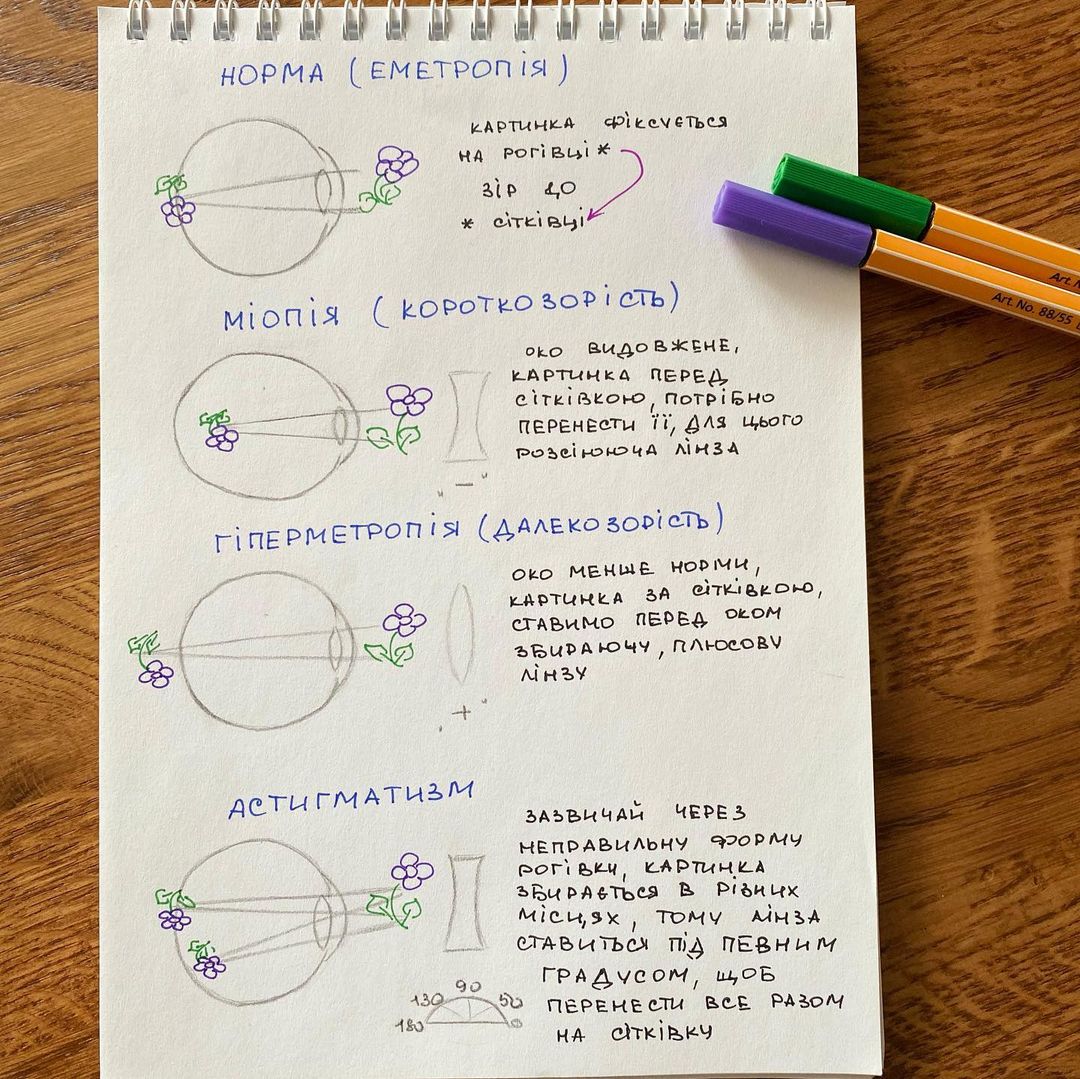 НОРМА (ЕМЕТРОПІЯ)
КАРТИНКА ФІКСУЄТЬСЯ
НА РОГІВЦІ *
ЗІР ДО
* СІТКІВЦІ
МІОПІЯ (КОРОТКОЗОРІСТЬ)
ОКО ВИДОВЖЕНЕ,
КАРТИНКА ПЕРЕД
СІТКІВКОЮ, ПОТРІБНО
ПЕРЕНЕСТИ ЇЇ, ДЛЯ ЦЬОГО
РОЗСІЮЮЧА ЛІНЗА
"−"
ГІПЕРМЕТРОПІЯ (ДАЛЕКОЗОРІСТЬ)
ОКО МЕНШЕ НОРМИ,
КАРТИНКА ЗА СІТКІВКОЮ,
СТАВИМО ПЕРЕД ОКОМ
ЗБИРАЮЧУ, ПЛЮСОВУ
ЛІНЗУ
"+"
АСТИГМАТИЗМ
ЗАЗВИЧАЙ ЧЕРЕЗ
НЕПРАВИЛЬНУ ФОРМУ
РОГІВКИ, КАРТИНКА
ЗБИРАЄТЬСЯ В РІЗНИХ
МІСЦЯХ, ТОМУ ЛІНЗА
СТАВИТЬСЯ ПІД ПЕВНИМ
ГРАДУСОМ, ЩОБ
ПЕРЕНЕСТИ ВСЕ РАЗОМ
НА СІТКІВКУ
180 130 90 50 0
Art.
Art. No. 88/55